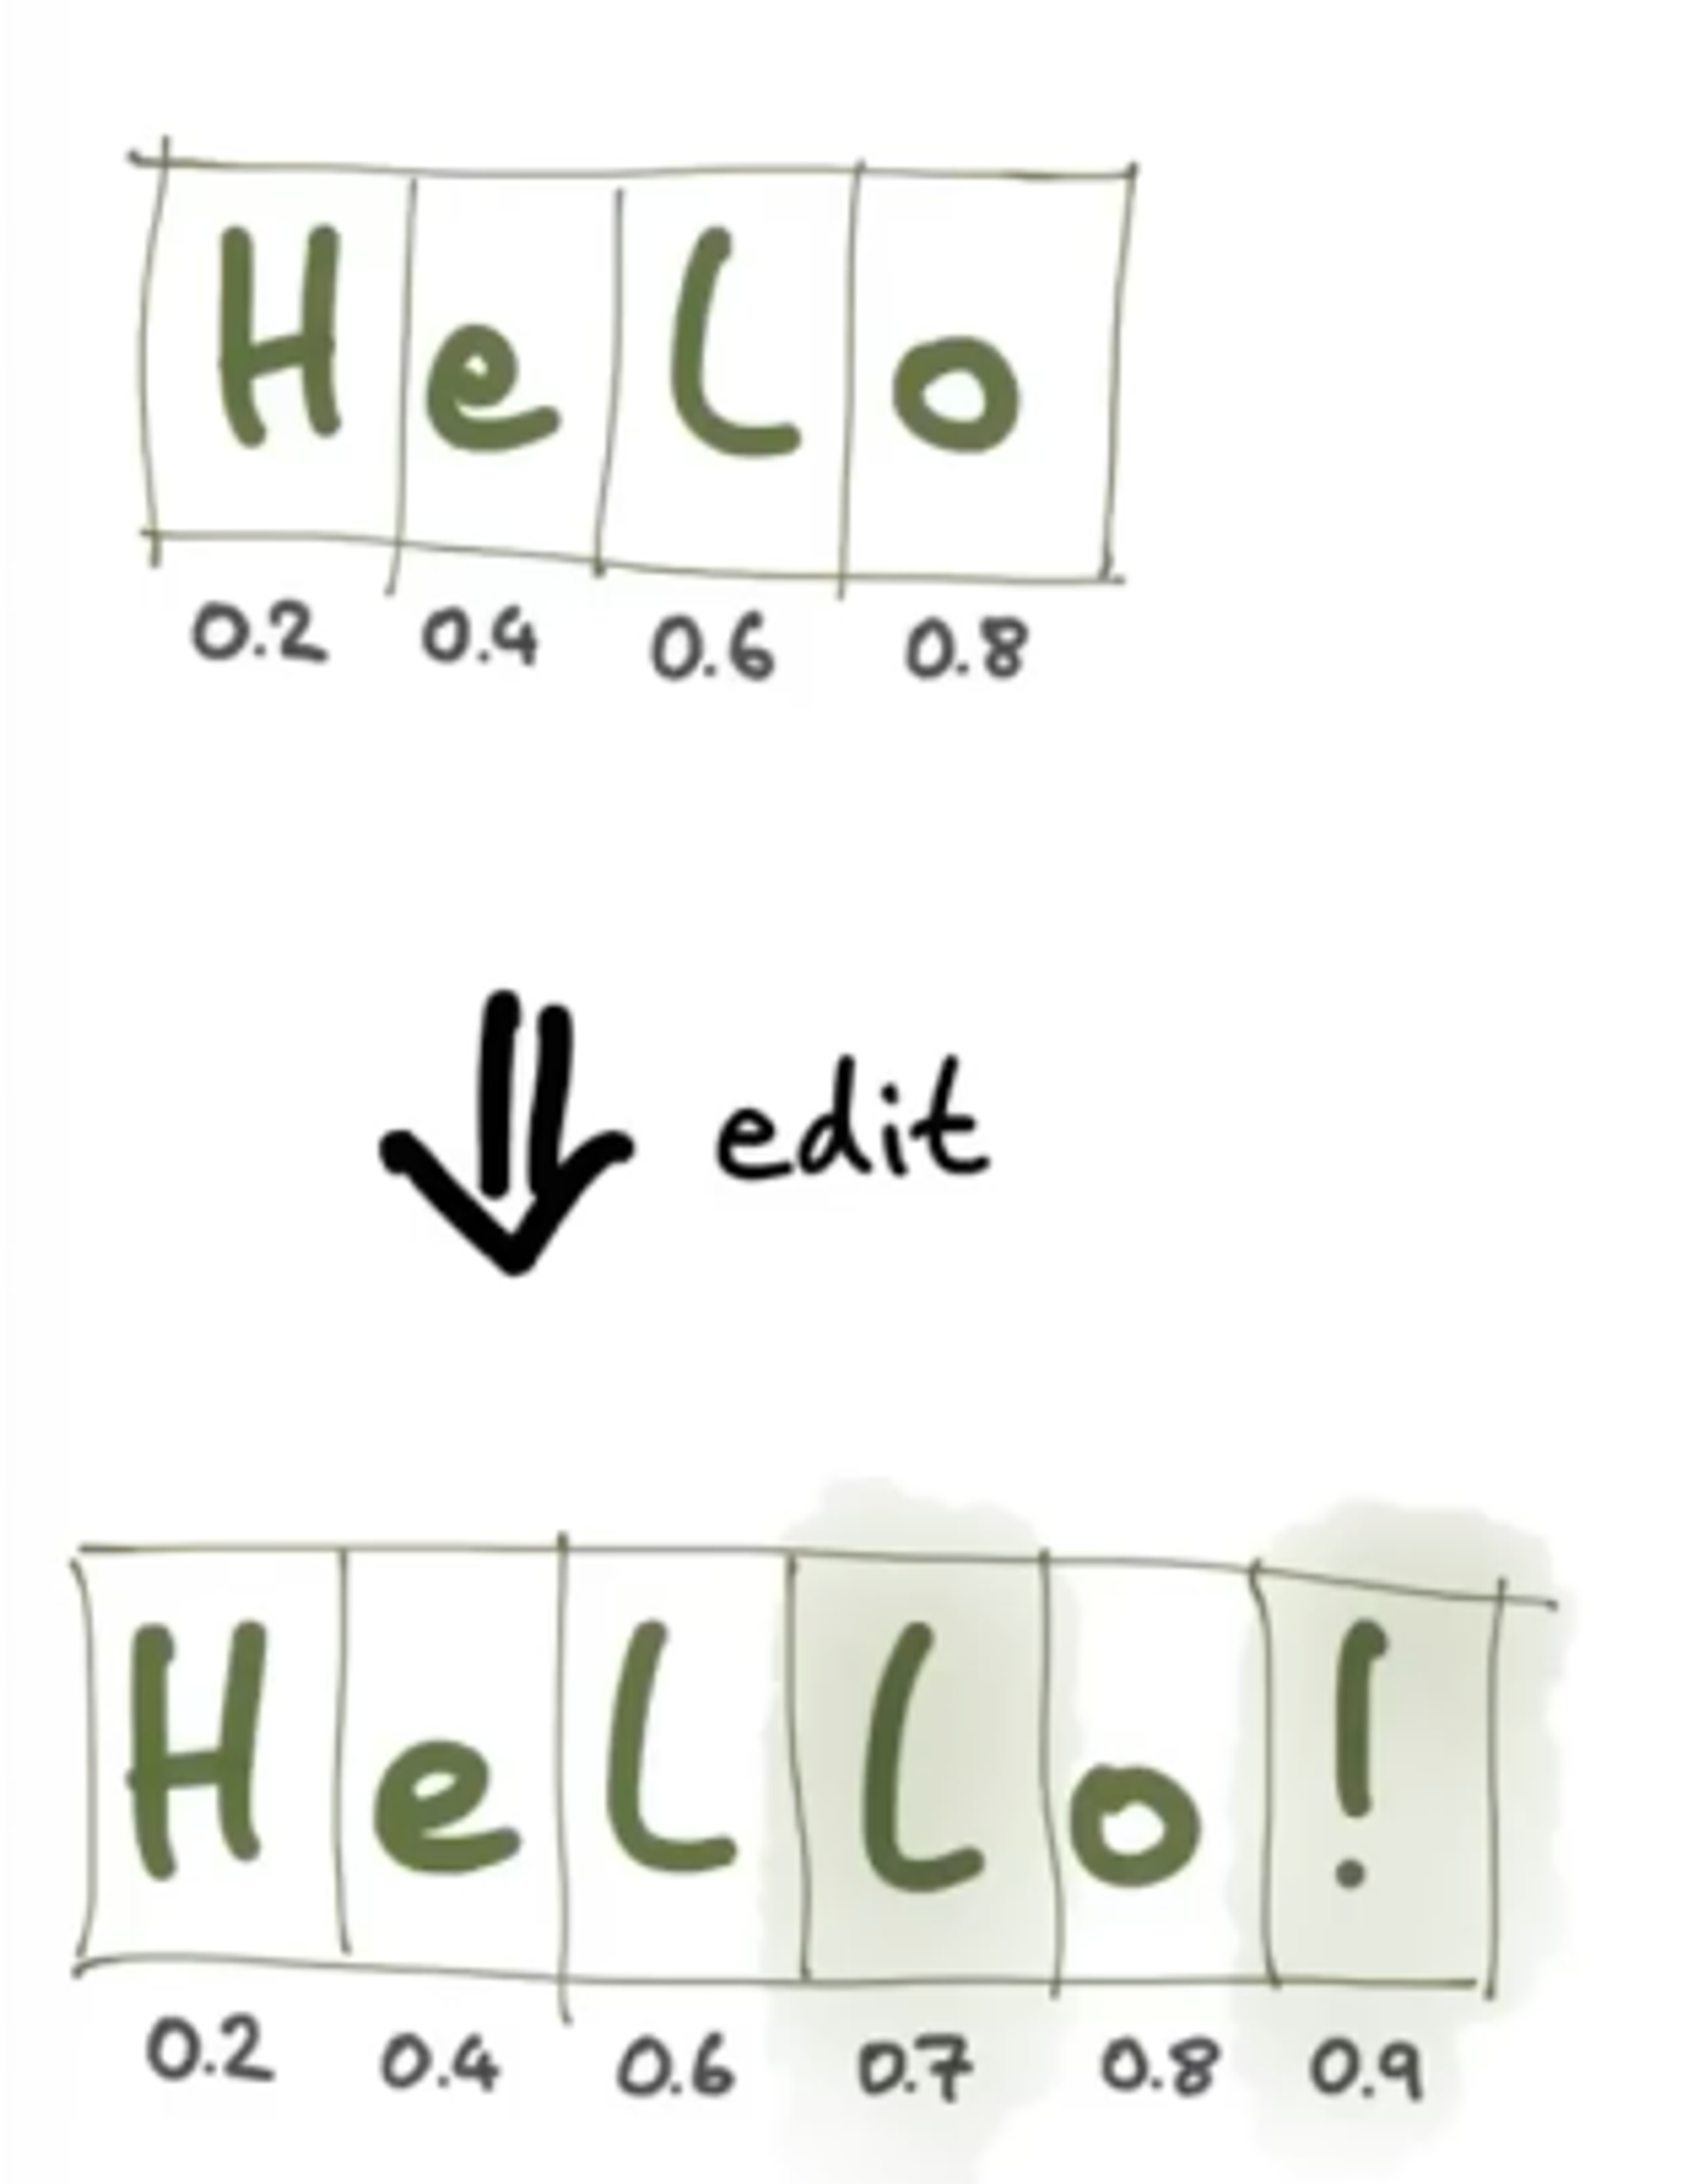 Helo
0.2 0.4 0.6 0.8
edit
Hello!
0.2 0.4 0.6 0.7 0.8 0.9